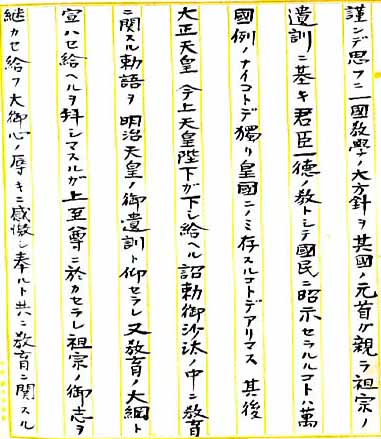 謹ンデ思フニ一國敎學ノ大方針ヲ其國ノ元首ガ親ラ祖宗ノ
遺訓ニ基キ君臣一德ノ敎トシテ國民ニ昭示セラルルコトハ萬
國例ノナイコトデ獨リ皇國ニノミ存スルコトデアリマス 其後
大正天皇 今上天皇陛下ガ下シ給ヘル詔勅御沙汰ノ中ニ敎育
ニ関スル勅語ヲ 明治天皇ノ御遺訓ト仰セラレ又敎育ノ大綱ト
宣ハセ給ヘルヲ拜シマスルガ上至尊ニ於カセラレ祖宗ノ御志ヲ
継カセ給フ大御心ノ辱キニ感激シ奉ルト共ニ敎育ニ関スル